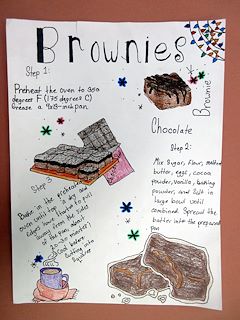 Brownies
Step 1:
Preheat the oven to 350
degrees F (175 degrees C)
Grease a 9x13-inch pan.
Brownie
Chocolate
Step 2:
Mix Sugar, flour, melted
butter, eggs, cocoa
powder, Vanilla, baking
powder, and Salt in
large bowl until
combined. Spread the
batter into the prepared
pan
Step 3
Bake in the preheated
oven until top is dry and
edges have started to pull
away from the sides
of the pan,
20-30 minutes!
Cool before
cutting into
squares